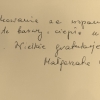 kowanie za wspan
te barwy - ciepłe u
. Wielkie gratulacje
Małgorzata